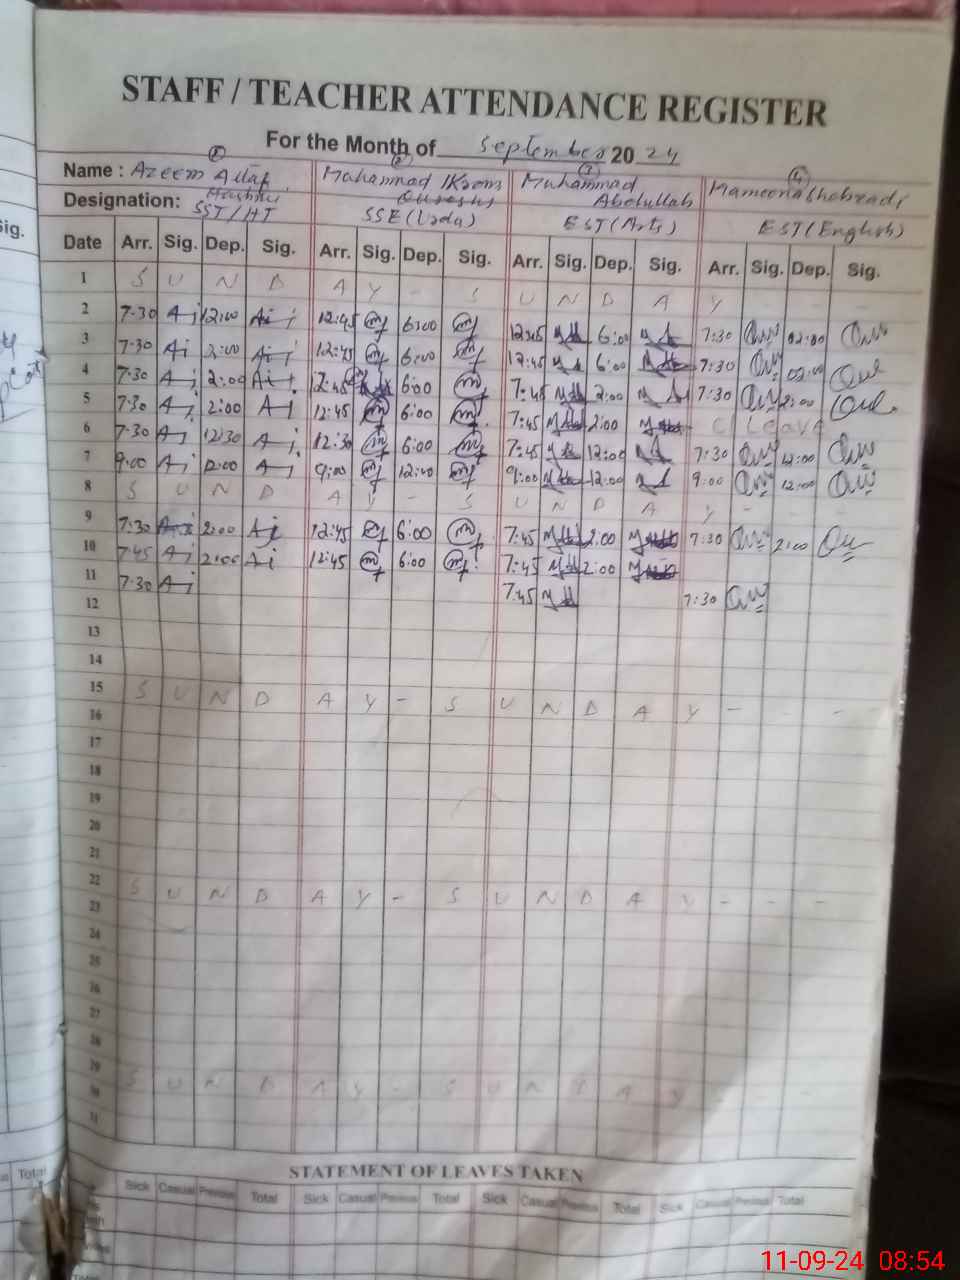 STAFF / TEACHER ATTENDANCE REGISTER
For the Month of September 2024
Name : Azeem Altaf Muhammad Ikram Muhammad Abdullah
Designation: SST/HT SSE (Urdu) EST (Arts) EST (English)
Date Arr. Sig. Dep. Sig. Arr. Sig. Dep. Sig. Arr. Sig. Dep. Sig. Arr. Sig. Dep. Sig.
1 S U N D A Y - S U N D A Y - - -
2 7-30 12:00 12:45 6:00 12:45 6:00 7:30 02:00
3 7:30 2:00 12:45 6:00 12:45 6:00 7:30 02:00
4 7:30 2:00 12:45 6:00 7:45 2:00 7:30 2:00
5 7:30 2:00 12:45 6:00 7:45 2:00 C/Leave
6 7:30 12:30 12:30 6:00 7:45 12:00 7:30 12:00
7 9:00 12:00 9:00 12:00 9:00 12:00 9:00 12:00
8 S U N D A Y - S U N D A Y - - -
9 7:30 2:00 12:45 6:00 7:45 2:00 7:30 2:00
10 7:45 2:00 12:45 6:00 7:45 2:00
11 7:30 7:45 7:30
12
13
14
15 S U N D A Y - S U N D A Y - - -
16
17
18
19
20
21
22 S U N D A Y - S U N D A Y - - -
23
24
25
26
27
28
29 S U N D A Y - S U N D A Y - - -
30
31
STATEMENT OF LEAVES TAKEN
Total Sick Casual Previous Total Sick Casual Previous Total Sick Casual Previous Total Sick Casual Previous Total
11-09-24 08:54